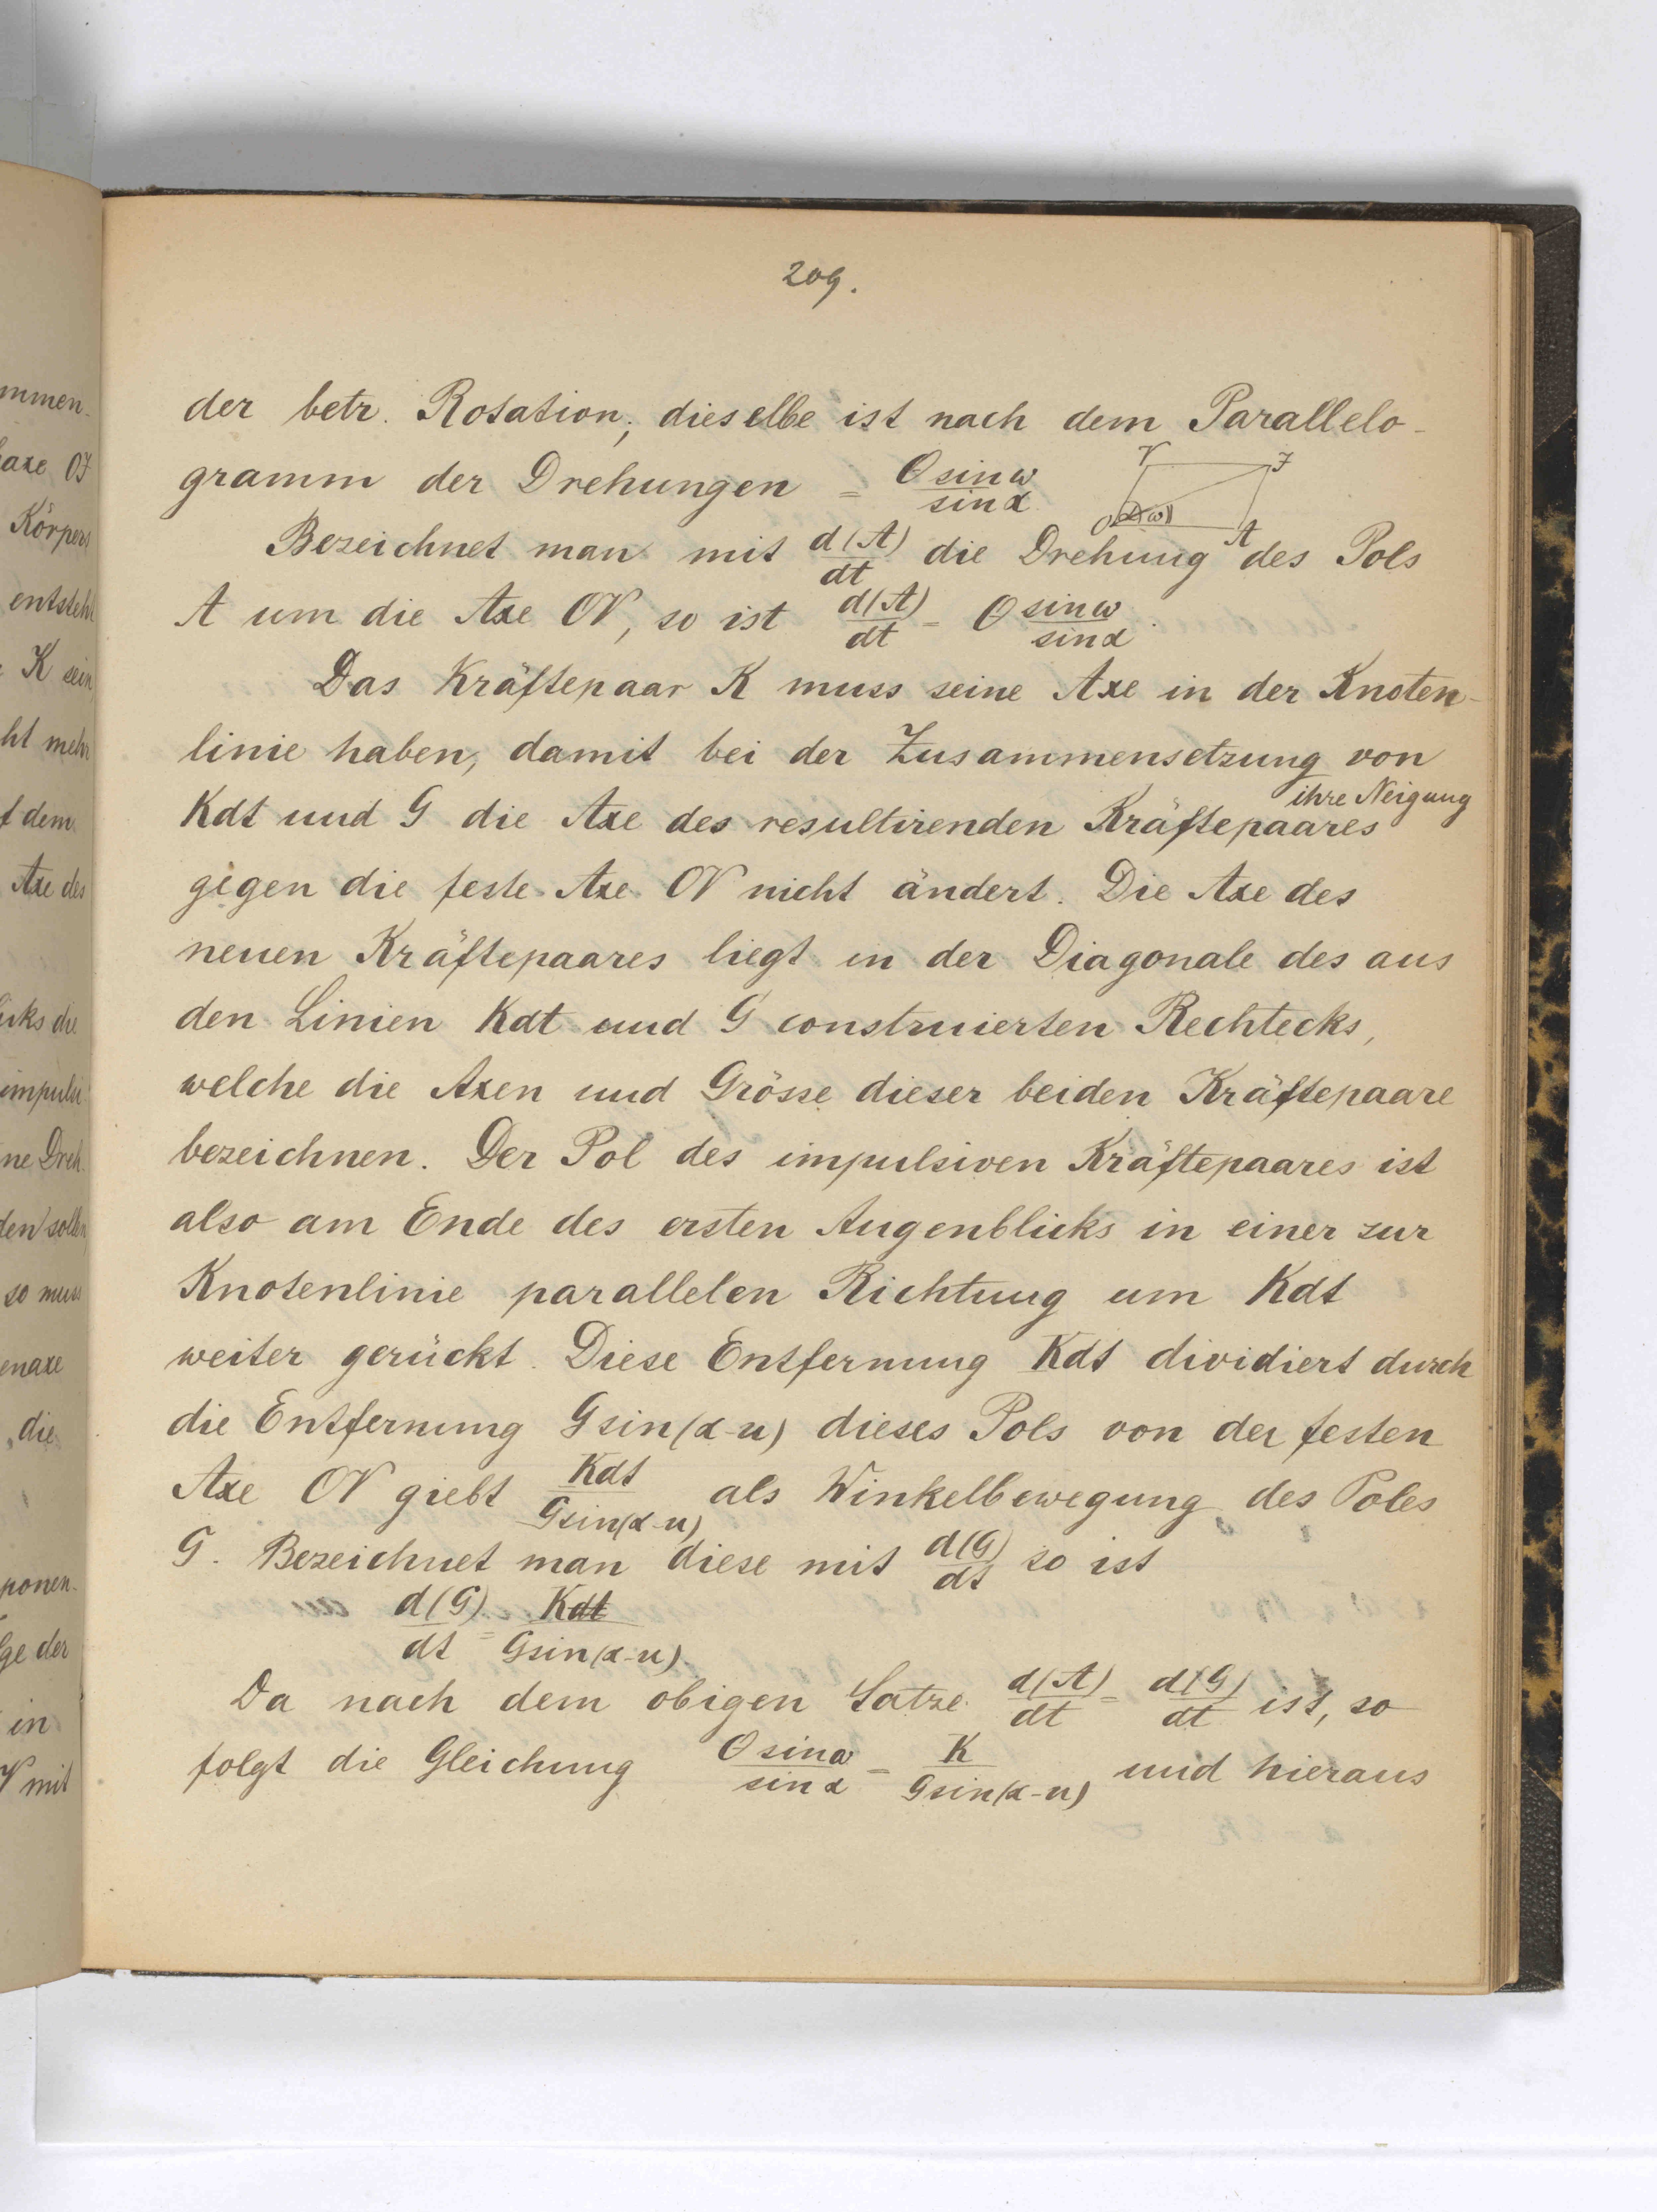 mmen-
axe OJ
Körpers
entsteht
K sein
ht mehr
f dem
Axe des
die
impuls
ne Dreh-
den sollen
so muss
enaxe
die
ponen-
ge der
in
V mit
209.
der betr. Rotation; dieselbe ist nach dem Parallelo-
gramm der Drehungen = Θ sin ω / sin α
V J
O α ω A
Bezeichnet man mit d(A)/dt die Drehung des Pols
A um die Axe OV, so ist d(A)/dt = Θ sin ω / sin α.
Das Kräftepaar K muss seine Axe in der Knoten-
linie haben, damit bei der Zusammensetzung von
ihre Neigung
Kdt und G die Axe des resultirenden Kräftepaares
gegen die feste Axe OV nicht ändert. Die Axe des
neuen Kräftepaares liegt in der Diagonale des aus
den Linien Kdt und G construierten Rechtecks,
welche die Axen und Grösse dieser beiden Kräftepaare
bezeichnen. Der Pol des impulsiven Kräftepaares ist
also am Ende des ersten Augenblicks in einer zur
Knotenlinie parallelen Richtung um Kdt
weiter gerückt. Diese Entfernung Kdt dividiert durch
die Entfernung G sin(α-u) dieses Pols von der festen
Axe OV giebt Kdt / G sin(α-u) als Winkelbewegung des Poles
G. Bezeichnet man diese mit d(G)/dt so ist
d(G)/dt = Kdt / G sin(α-u).
Da nach dem obigen Satze d(A)/dt = d(G)/dt ist, so
folgt die Gleichung Θ sin ω / sin α = K / G sin(α-u) und hieraus